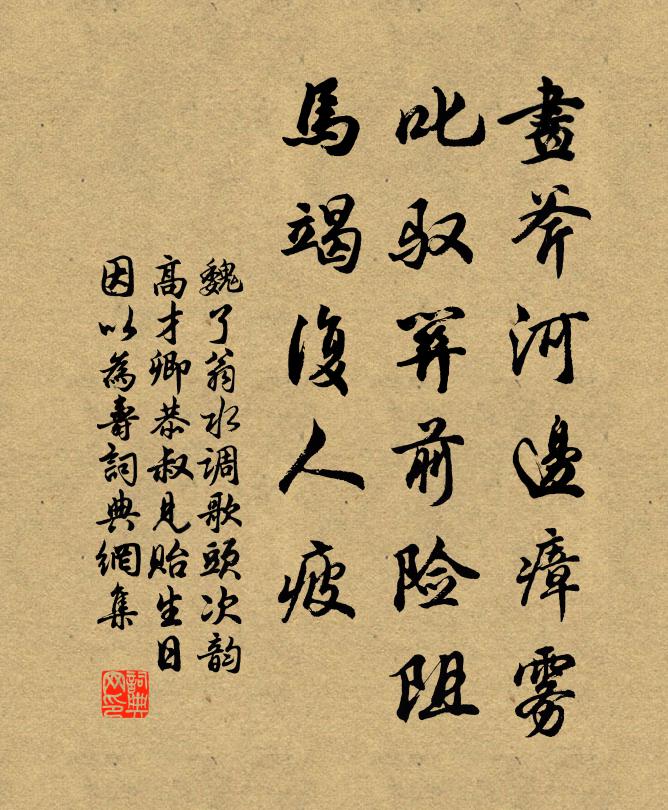 畫斧河邊瘴雾
叱驭前险阻
馬竭復人疲
魏了翁水调歌頭次韵
高才卿恭叔見貽生日
因以為壽詞典網集
詞典网印